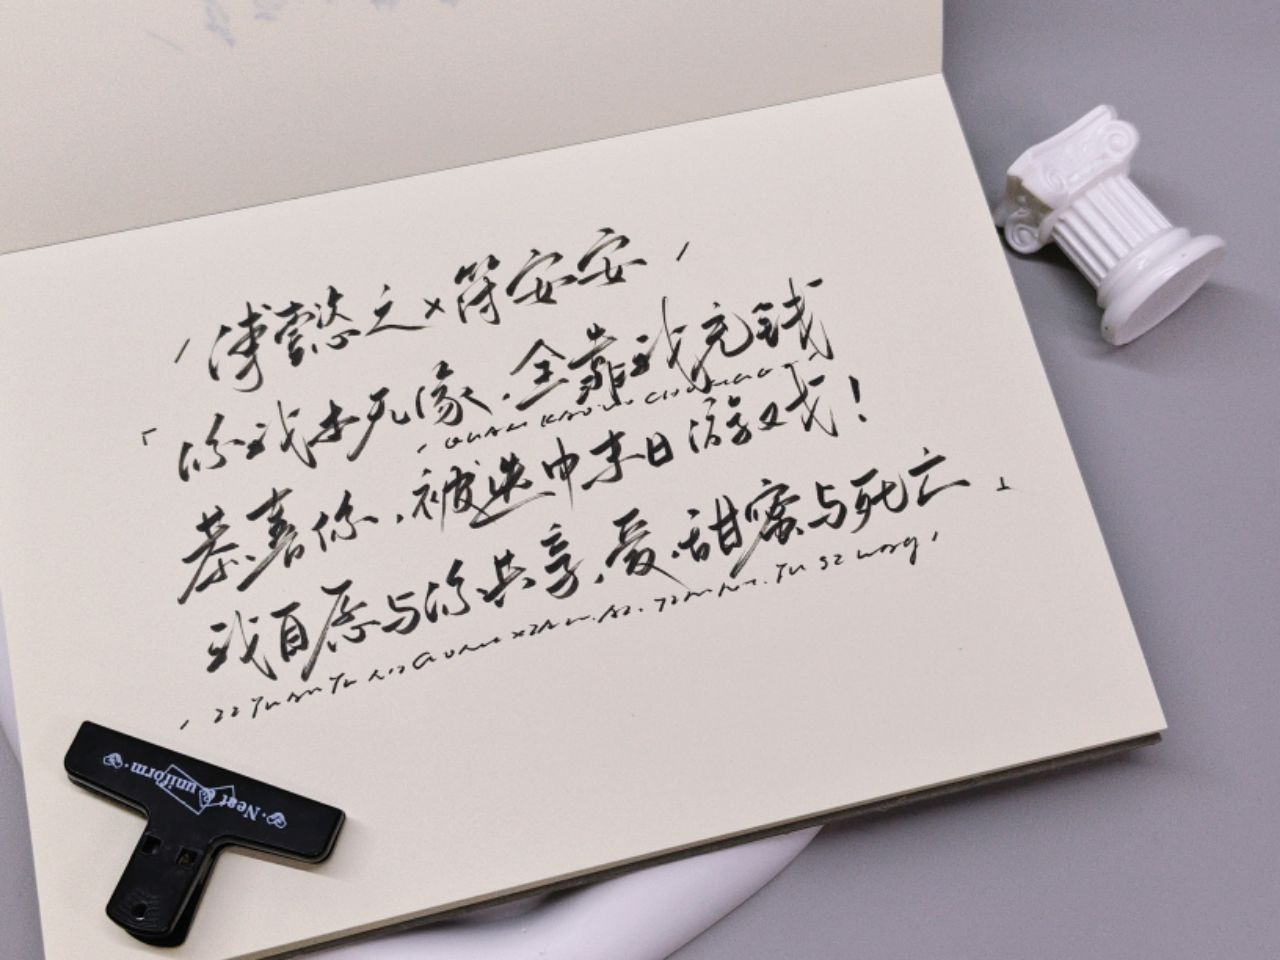 傅懿之×符安安
「你我本无缘，全靠我充钱
QUAN KAO WO CHONG QIAN
恭喜你，被选中末日游戏！
我自愿与你共享，爱、甜蜜与死亡」
ZI YUAN YU NI GONG XIANG. AI. TIAN MI. YU SI WANG
·Neat & uniform·